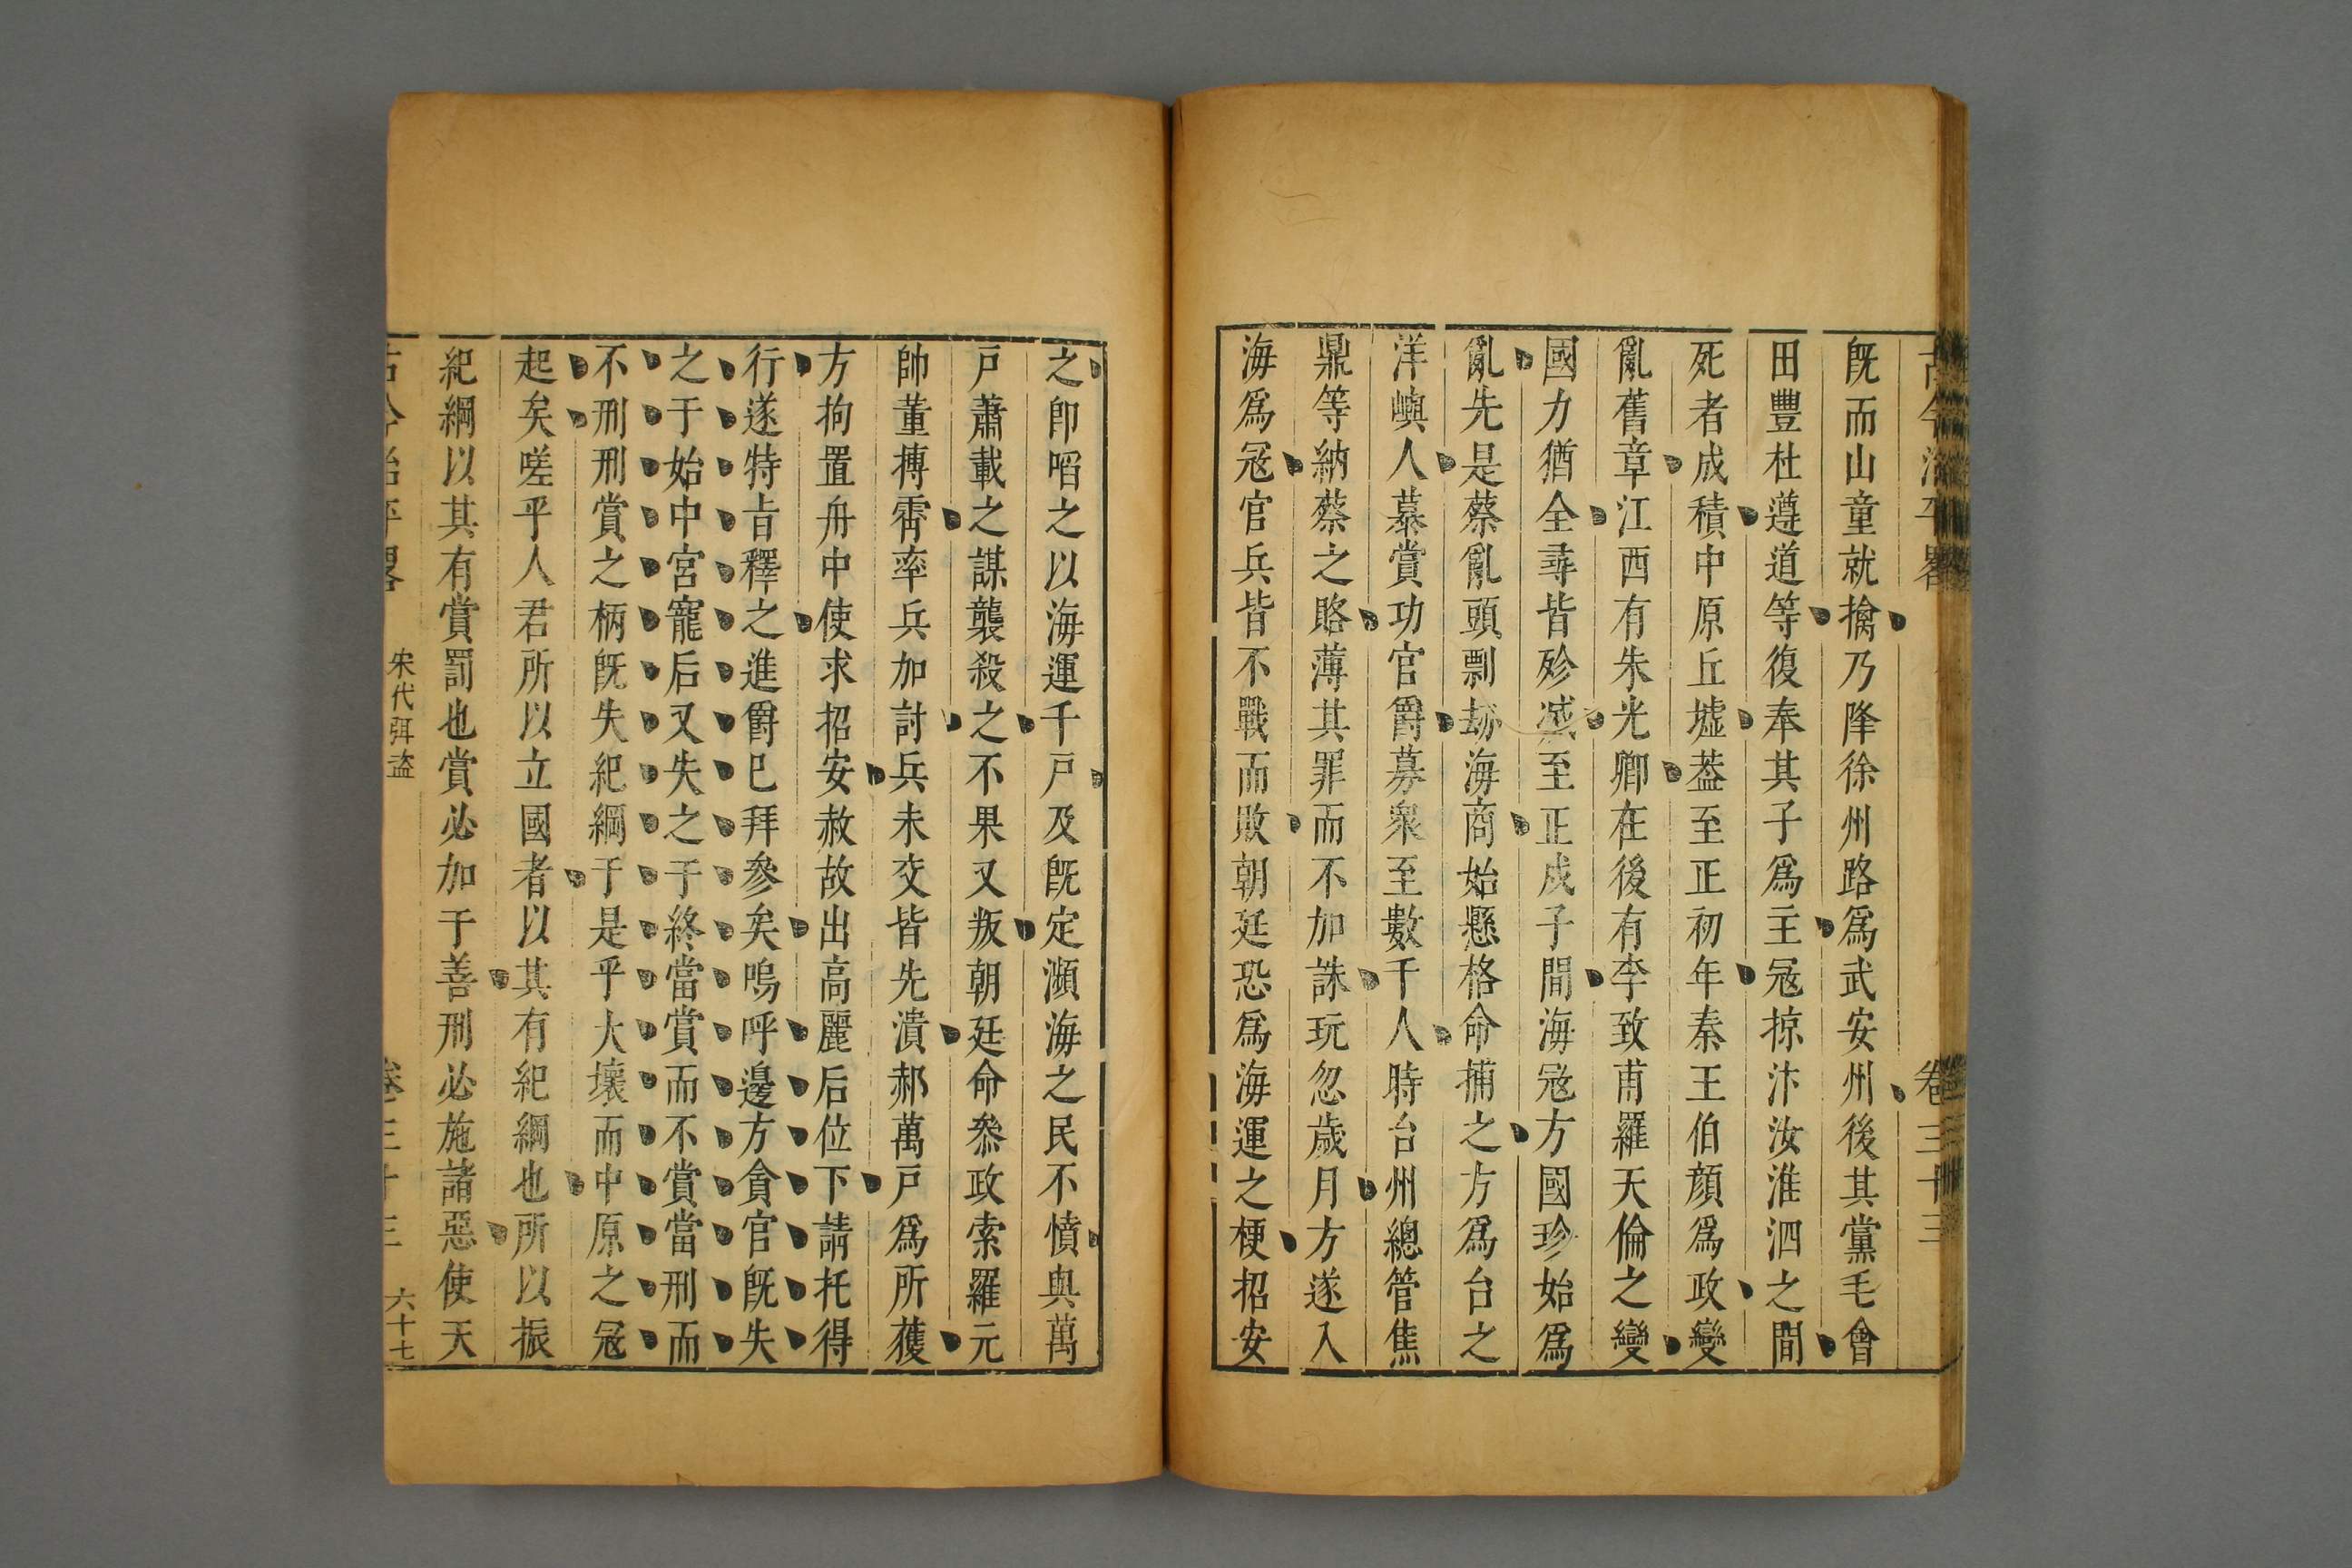 古今治平畧 卷三十三
旣而山童就擒乃降徐州路爲武安州後其黨毛會
田豐杜遵道等復奉其子爲主冦掠汴汝淮泗之間
死者成積中原丘墟葢至正初年秦王伯顔爲政變
亂舊章江西有朱光卿在後有李致甫羅天倫之變
國力猶全尋皆殄滅至正戍子間海冦方國珍始爲
亂先是蔡亂頭剽劫海商始懸格命捕之方爲台之
洋嶼人慕賞功官爵募衆至數千人時台州總管焦
鼎等納蔡之賂薄其罪而不加誅玩忽歲月方遂入
海爲冦官兵皆不戰而敗朝廷恐爲海運之梗招安
之卽啗之以海運千戸及旣定瀕海之民不憤與萬
戸蕭載之謀襲殺之不果又叛朝廷命叅政索羅元
帥董搏霄率兵加討兵未交皆先潰郝萬戸爲所獲
方拘置舟中使求招安赦故出高麗后位下請托得
行遂特旨釋之進爵巳拜參矣嗚呼邊方貪官旣失
之于始中宮寵后又失之于終當賞而不賞當刑而
不刑刑賞之柄旣失紀綱于是乎大壞而中原之冦
起矣嗟乎人君所以立國者以其有紀綱也所以振
紀綱以其有賞罰也賞必加于善刑必施諸惡使天
古今治平畧 宋代弭盜 卷三十三 六十七